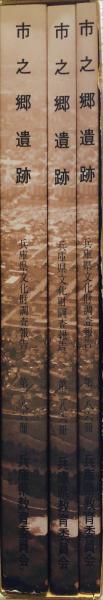 市之郷遺跡
兵庫県文化財調査報告
兵庫県教育委員会
市之郷遺跡
兵庫県文化財調査報告
兵庫県教育委員会
市之郷遺跡
兵庫県文化財調査報告
兵庫県教育委員会